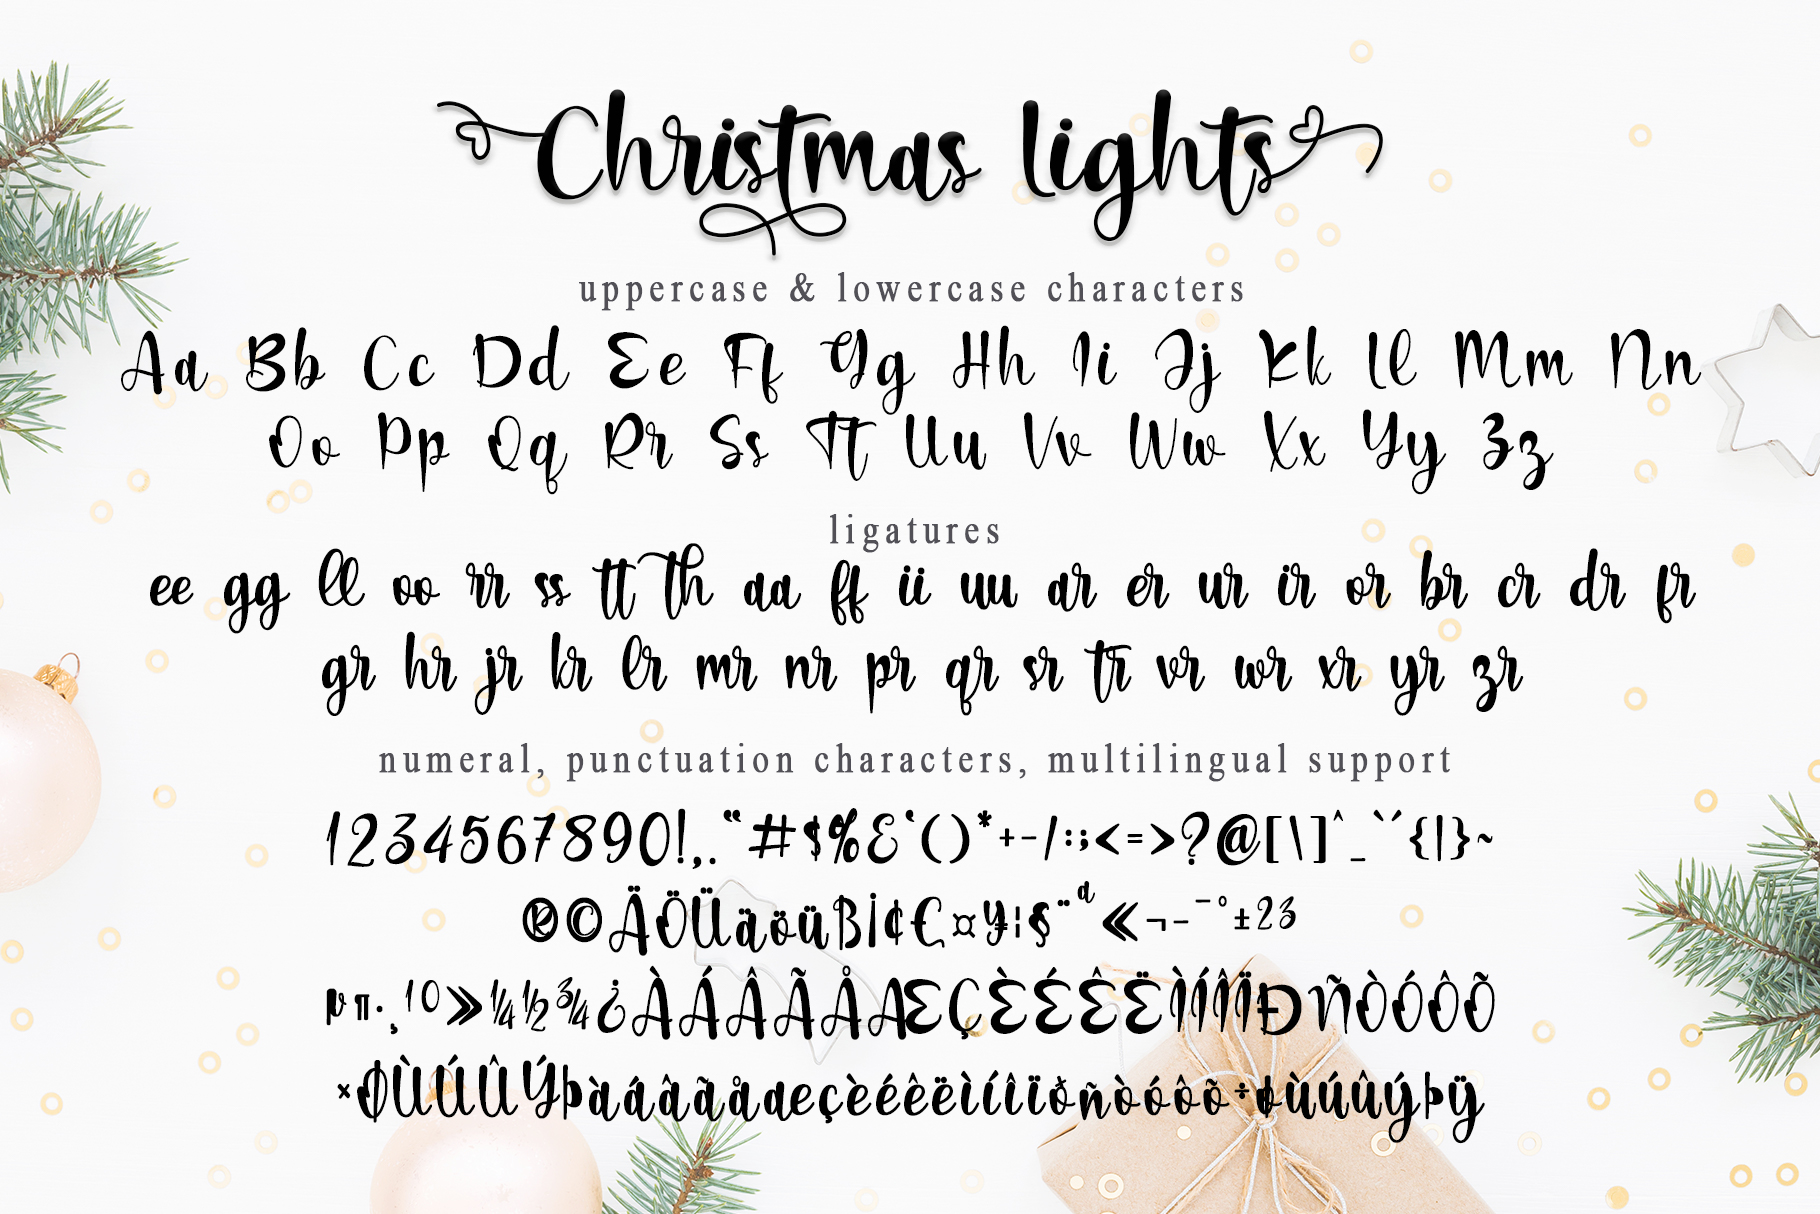 Christmas lights
uppercase & lowercase characters
Aa Bb Cc Dd Ee Ff Gg Hh Ii Jj Kk Ll Mm Nn
Oo Pp Qq Rr Ss Tt Uu Vv Ww Xx Yy Zz
ligatures
ee gg ll oo rr ss tt th aa ff ii uu ar er ur ir or br cr dr fr
gr hr jr kr lr mr nr pr qr sr tr vr wr xr yr zr
numeral, punctuation characters, multilingual support
1234567890!,.“#$%&‘()*+-/:;<=>?@[\]^_`´{|}~
®©ÄÖÜäöüß¡¢€¤¥¦§¨ª«¬-¯°±²³
µ¶·¸¹⁰»¼½¾¿ÀÁÂÃÅÆÇÈÉÊËÌÍÎÏÐÑÒÓÔÕ
×ØÙÚÛÝÞàáâãåæçèéêëìíîïðñòóôõ÷øùúûýþÿ